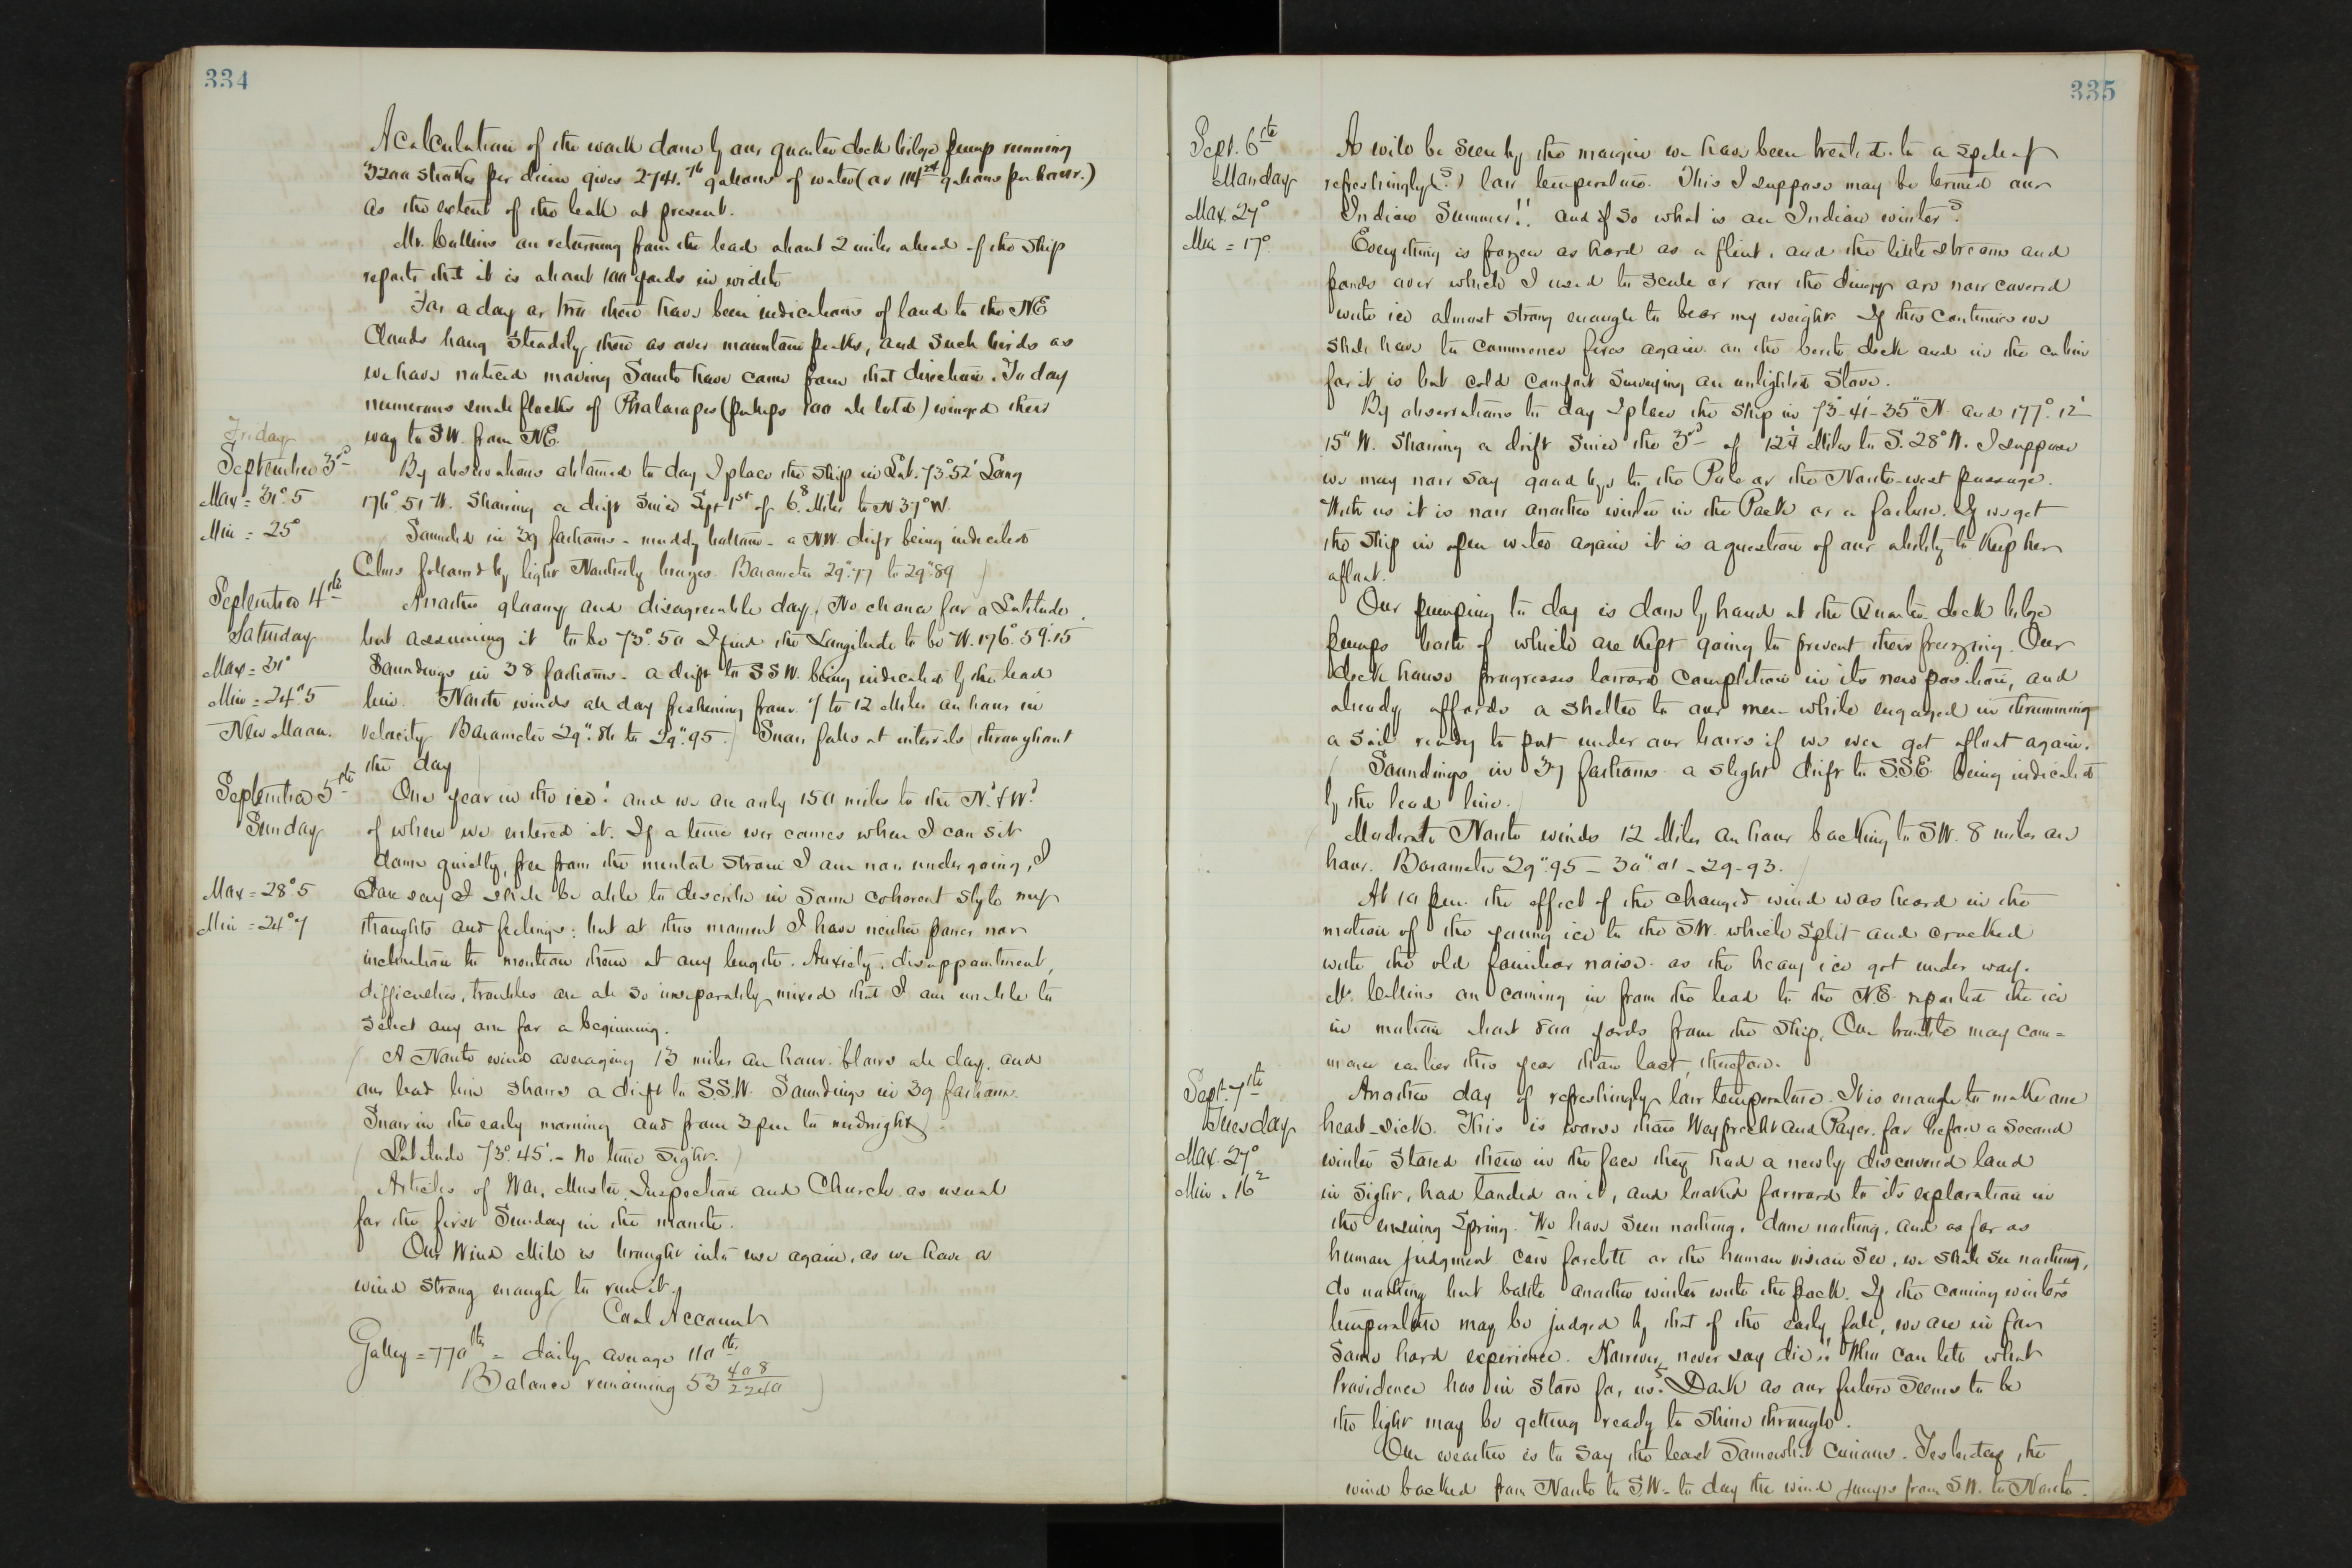 334
A calculation of the work done by our quarter deck bilge pump running
3200 strokes per diem gives 2741. gallons of water (or 114 gallons per hour.)
as the extent of the leak at present.
Mr. Collins on returning from the lead about 2 miles ahead of the ship
reports that it is about 100 yards in width
For a day or two there have been indications of land to the NE
Clouds hang steadily there as over mountain peaks, and such birds as
we have noticed moving South have come from that direction. To day
numerous small flocks of Phalaropes (perhaps 100 all told) winged their
way to SW. from NE.
Friday
September 3rd
Max = 31°.5
Min = 25°
By observations obtained to day I place the ship in Lat. 73°.52' Long
176°.51 W. Showing a drift since Sept 1st of 6.8 Miles to N 37° W.
Sounded in 39 fathoms - muddy bottom - a NW. drift being indicated
Calms followed by light Northerly breezes. Barometer 29".77 to 29".89
September 4th
Saturday
Max = 31°
Min = 24°.5
New Moon.
Another gloomy and disagreeable day. No chance for a Latitude
but assuming it to be 73°.50 I find the Longitude to be W. 176°.59'.15
Soundings in 38 fathoms - a drift to SSW. being indicated by the lead
line. North winds all day freshening from 7 to 12 Miles an hour in
velocity Barometer 29".86 to 29".95. Snow falls at intervals throughout
the day
September 5th
Sunday
Max = 28°5
Min = 24°7
One year in the ice! and we are only 150 miles to the Nd & Wd
of where we entered it. If a time ever comes when I can sit
down quietly, free from the mental strain I am now undergoing, I
dare say I shall be able to describe in some coherent style my
thoughts and feelings; but at this moment I have neither power nor
inclination to mention them at any length. Anxiety, disappointment,
difficulties, troubles are all so inseparably mixed that I am unable to
select any one for a beginning.
A North wind averaging 13 miles an hour blows all day, and
our lead line shows a drift to S.S.W. Soundings in 39 fathoms.
Snow in the early morning and from 3 pm to midnight
Latitude 73°.45'. - No time sight.
Articles of War, Muster, Inspection and Church as usual
for the first Sunday in the month.
Our Wind Mill is brought into use again, as we have a
wind strong enough to run it.
Coal Account
Galley = 770 lbs = daily average 110 lbs.
Balance remaining 53 408/2240
335
Sept. 6th
Monday
Max. 27°
Min = 17°
As will be seen by the margin we have been treated to a spell of
refreshingly (?) low temperature. This I suppose may be termed our
Indian Summer!! and if so what is an Indian winter?
Everything is frozen as hard as a flint, and the little streams and
ponds over which I used to scull or row the dinghy are now covered
with ice almost strong enough to bear my weight. If this continues we
shall have to commence fires again on the berth deck and in the cabin
for it is but cold comfort surveying an unlighted stove.
By observations to day I place the ship in 73°-41'-35" N. and 177°.12'
15" W. Showing a drift since the 3rd of 12.4 Miles to S. 28° W. I suppose
we may now say good bye to the Pole or the North-west passage.
With us it is now another winter in the Pack or a failure. If we get
the ship in open water again it is a question of our ability to keep her
afloat.
Our pumping to day is done by hand at the Quarter deck bilge
pumps both of which are kept going to prevent their freezing. Our
deck house progresses toward completion in its new position, and
already affords a shelter to our men while engaged in thrumming
a sail ready to put under our bows if we ever get afloat again.
Soundings in 37 fathoms a slight drift to S.S.E. being indicated
by the lead line.
Moderate North winds 12 Miles an hour backing to SW. 8 miles an
hour. Barometer 29".95 - 30".01 - 29.93.
At 10 pm. the effect of the changed wind was heard in the
motion of the young ice to the SW. which split and cracked
with the old familiar noise as the heavy ice got under way.
Mr. Collins on coming in from the lead to the N.E. reported the ice
in motion about 800 yards from the ship. Our trouble may com=
mence earlier this year than last, therefore.
Sept. 7th
Tuesday
Max. 27°
Min. 16²
Another day of refreshingly low temperature. It is enough to make one
heart-sick. This is worse than Weyprecht and Payer, for before a second
winter stared them in the face they had a newly discovered land
in sight, had landed on it, and looked forward to its exploration in
the ensuing Spring. We have seen nothing, done nothing, and as far as
human judgment can foretell or the human vision see, we shall see nothing,
do nothing but battle another winter with the pack. If the coming winter's
temperature may be judged by that of the early fall, we are in for
some hard experience. However, never say die!! Who can tell what
Providence has in store for us? Dark as our future seems to be
the light may be getting ready to shine through.
Our weather is to say the least somewhat curious. Yesterday the
wind backed from North to S.W. - to day the wind jumps from SW. to North.